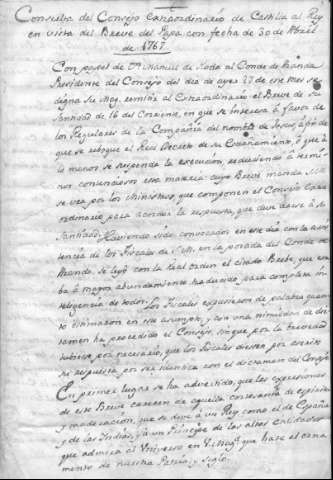 Consulta del Consejo Extraordinario de Castilla al Rey
en vista del Breve del Papa con fecha de 30 de Abril
de 1767
Con papel de Dn. Manuel de Roda al Conde de Aranda
Presidente del Consejo del dia de ayer 29 de este mes se
digna Su Mag. remitir al Extraordinario el Breve de su
Santidad de 16 del Corriente, en que se interesa á favor de
los Regulares de la Compañia del nombre de Jesus, á fin de
que se revoque el Real Decreto de su Estrañamiento, ó que á
lo menos se suspenda la execucion, reduciendo á termi-
nos contenciosos esta materia: cuyo Breve manda S.M.
se vea por los Ministros que componen el Consejo Extra-
ordinario para acordar la respuesta, que deve darse á Su
Santidad. Haviendo sido convocados en este dia con la asis-
tencia de los Fiscales de S.M. en la posada del Conde de
Aranda, se leyó con la Real orden el citado Breve, que esta-
ba traducido para completa in-
teligencia de todos. Los Fiscales expusieron de palabra quan-
to estimaron en este asumpto; y con una nimidad de dic-
tamen ha procedido el Consejo, sin que, por la brevedad
tubiese por necesario, que los Fiscales diesen por escrito
su respuesta, por ser identica con el dictamen del Consejo
En primer lugar se ha advertido, que las expresiones
de este Breve carecen de aquella cortesania de espiritu
y moderacion, que se deve á un Rey como el de España
y de las Indias, y á un Principe de las altas Calidades
que admira el Universo en V. Mag. que hace el orna-
mento de nuestra Patria y Siglo.